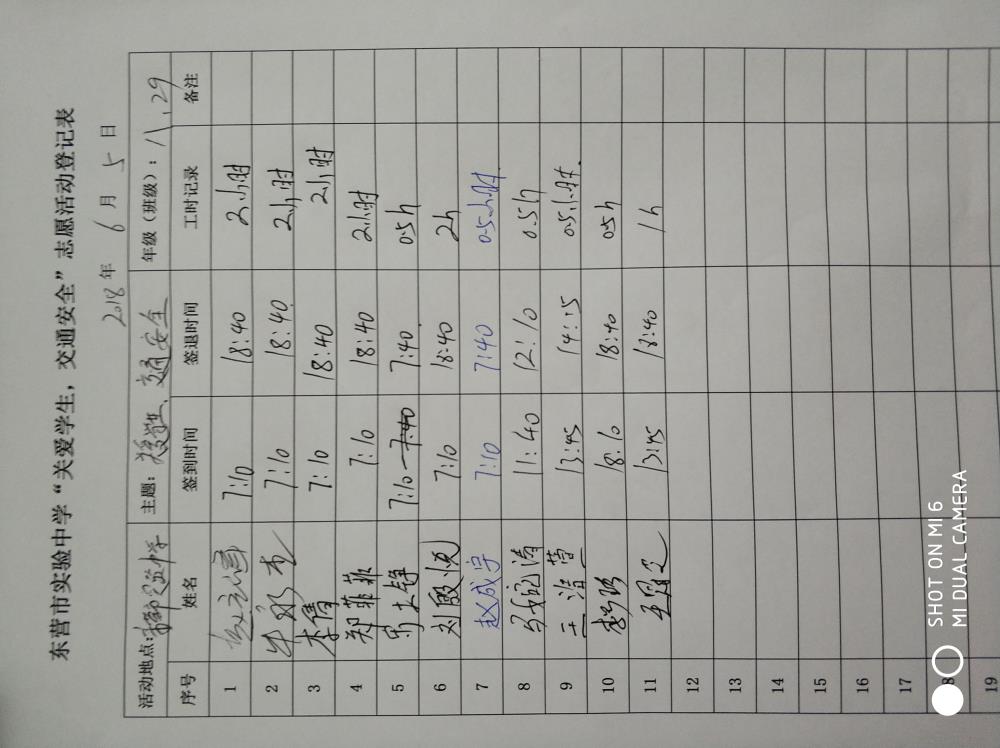 东营市实验中学“关爱学生，交通安全”志愿活动登记表
2018年 6月 5日
活动地点: 主题: 交通安全 年级（班级）: 11, 29
序号 姓名 签到时间 签退时间 工时记录 备注
1 7:10 18:40 2小时
2 7:10 18:40 2小时
3 李倩 7:10 18:40 2小时
4 郑菲菲 7:10 18:40 2小时
5 7:10 7:40 7:40 0.5h
6 刘殷悦 7:10 18:40 2h
7 赵成宇 7:10 7:40 0.5小时
8 11:40 12:10 0.5h
9 13:45 14:15 0.5小时
10 18:10 18:40 0.5h
11 13:45 18:40 1h
12
13
14
15
16
17
19
SHOT ON MI 6
MI DUAL CAMERA